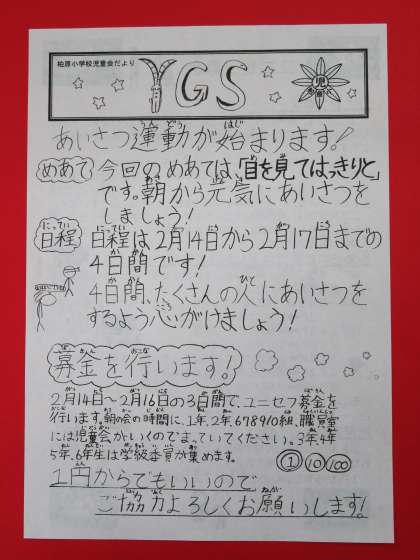 柏原小学校児童会だより
YGS
児童会
あいさつ運動が始まります!
めあて 今回のめあては、「目を見てはっきりと」
です。朝から元気にあいさつを
しましょう!
日程 日程は2月14日から2月17日までの
4日間です!
4日間、たくさんの人にあいさつを
するよう心がけましょう!
募金を行います!
2月14日～2月16日の3日間で、ユニセフ募金を
行います。朝の会の時間に、1年、2年、678910組、職員室
には児童会がいくのでまっていてください。3年、4年
5年、6年生は学級委員が集めます。
1 10 100
1円からでもいいので
ご協力よろしくお願いします!